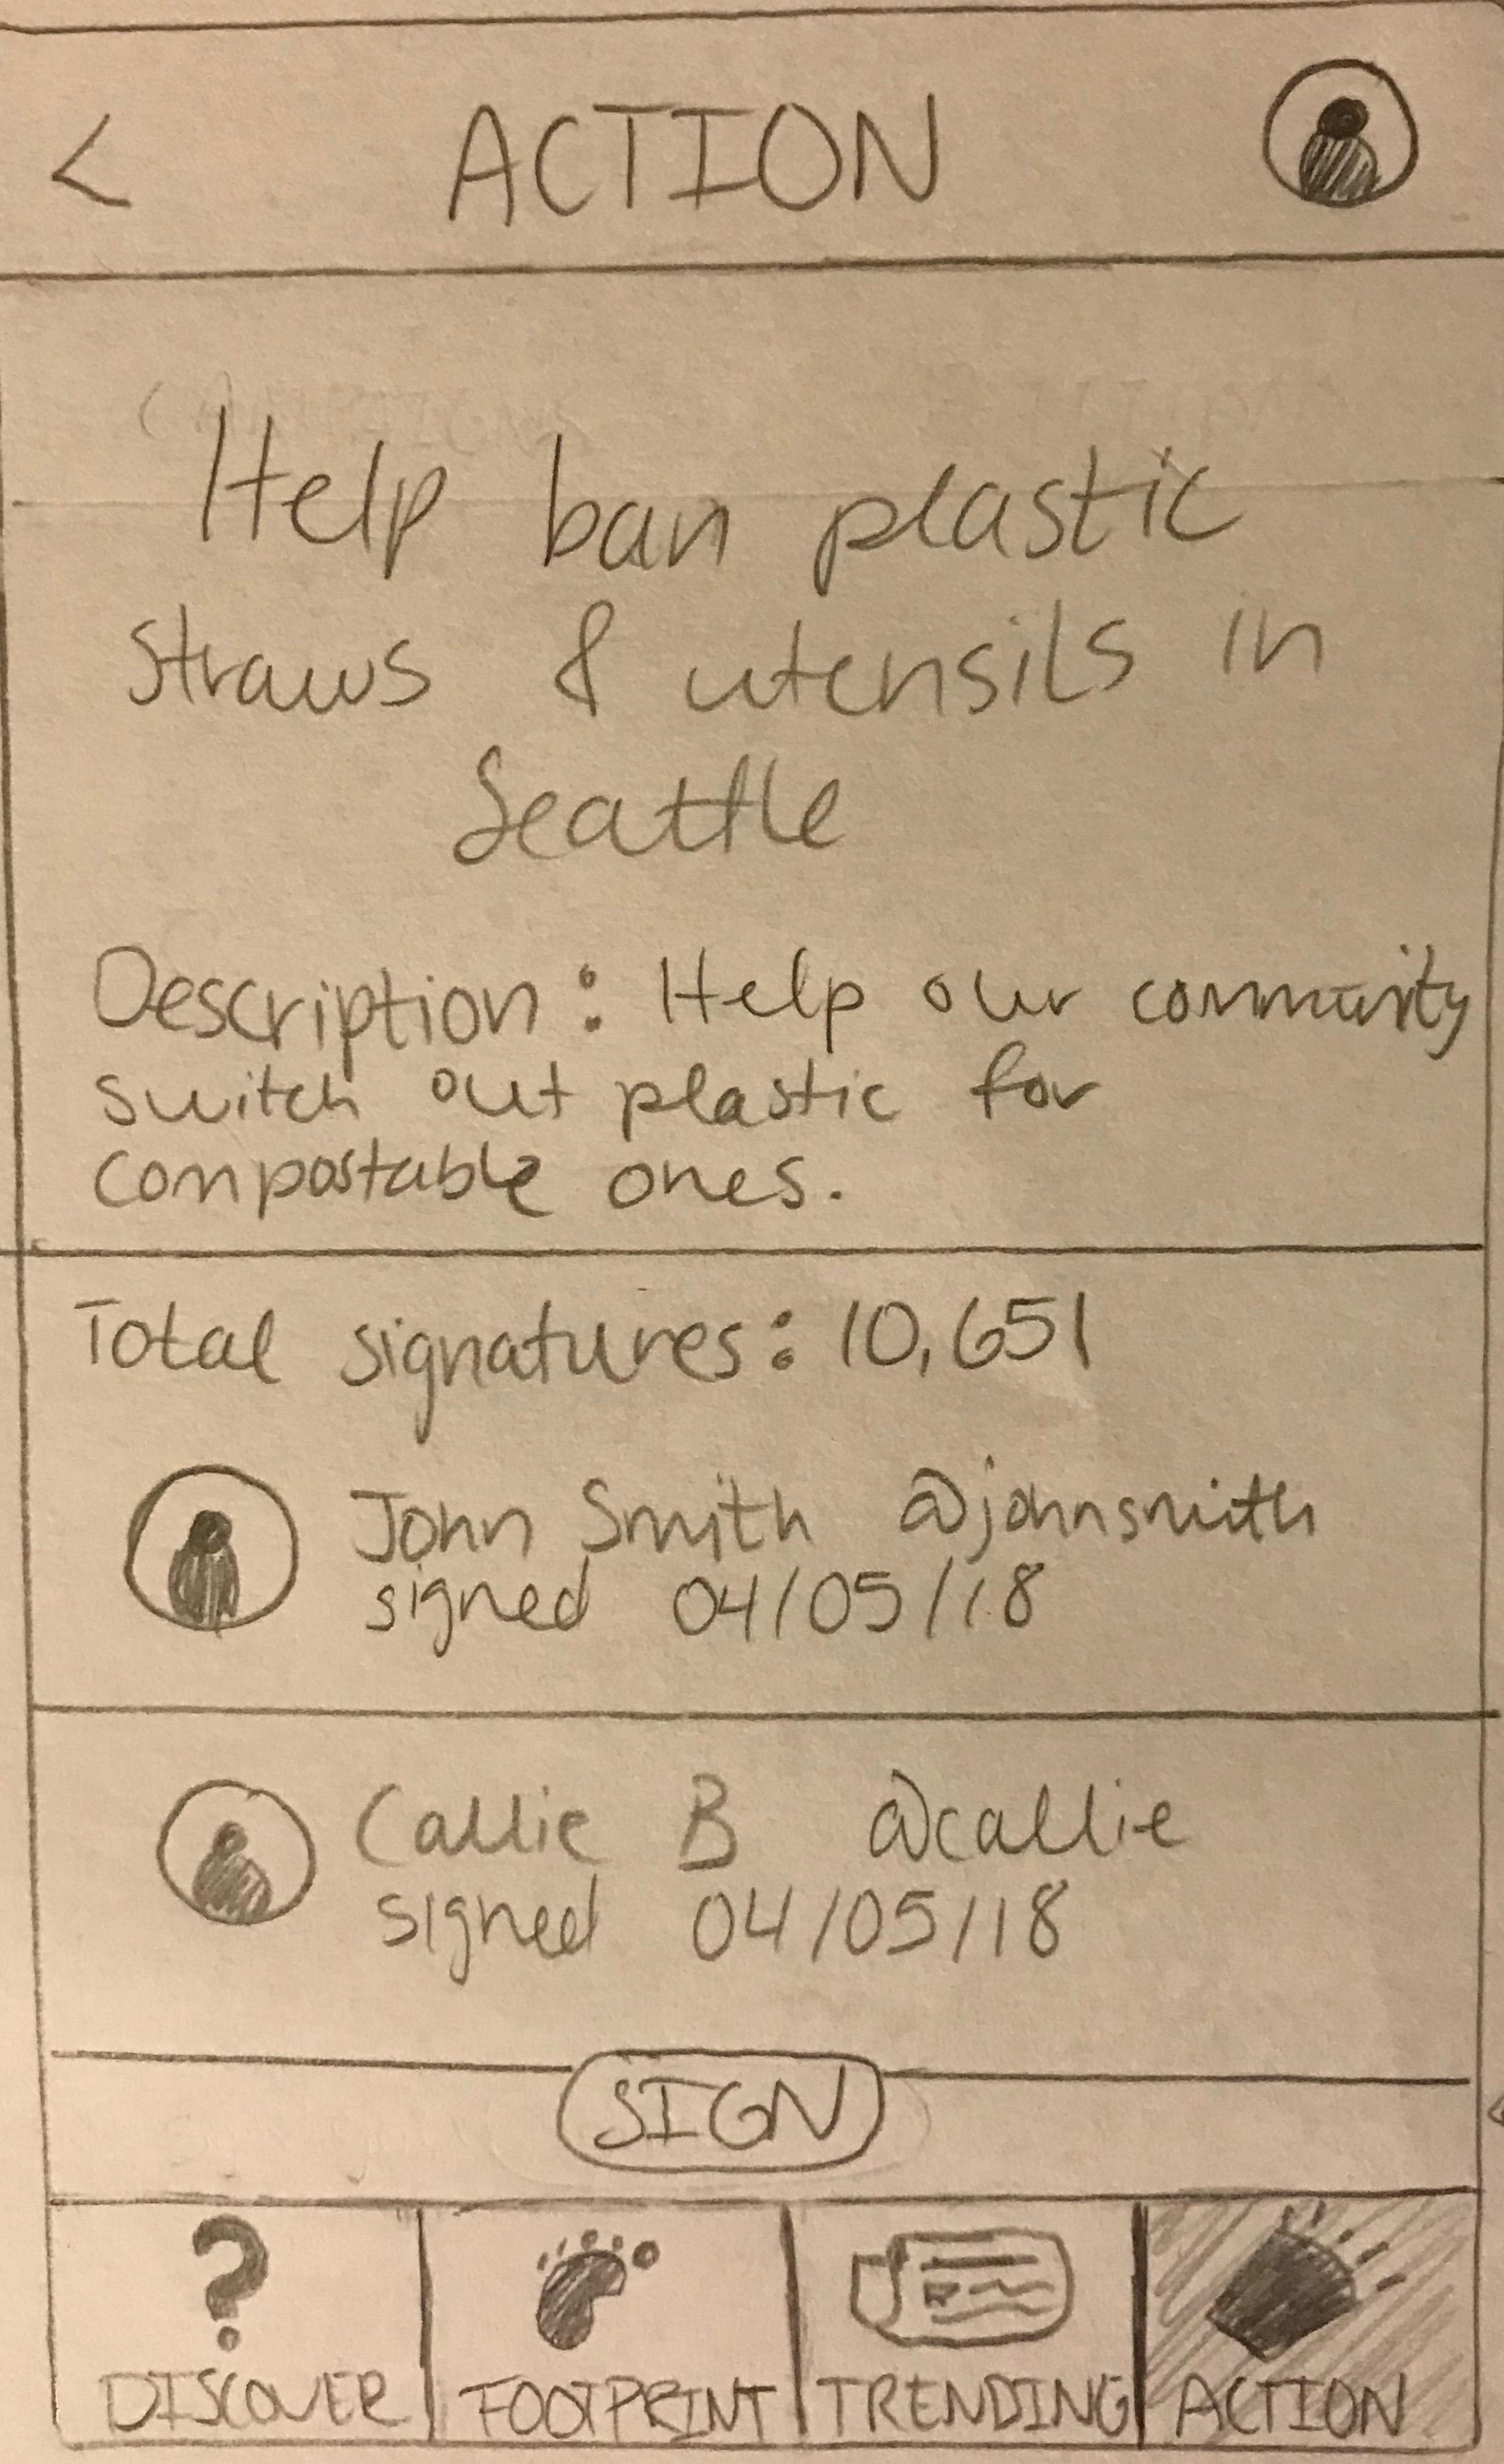 < ACTION
Help ban plastic
straws & utensils in
Seattle
Description: Help our community
switch out plastic for
compostable ones.
Total signatures: 10,651
John Smith @johnsmith
signed 04/05/18
Callie B @callie
signed 04/05/18
SIGN
?
DISCOVER FOOTPRINT TRENDING ACTION